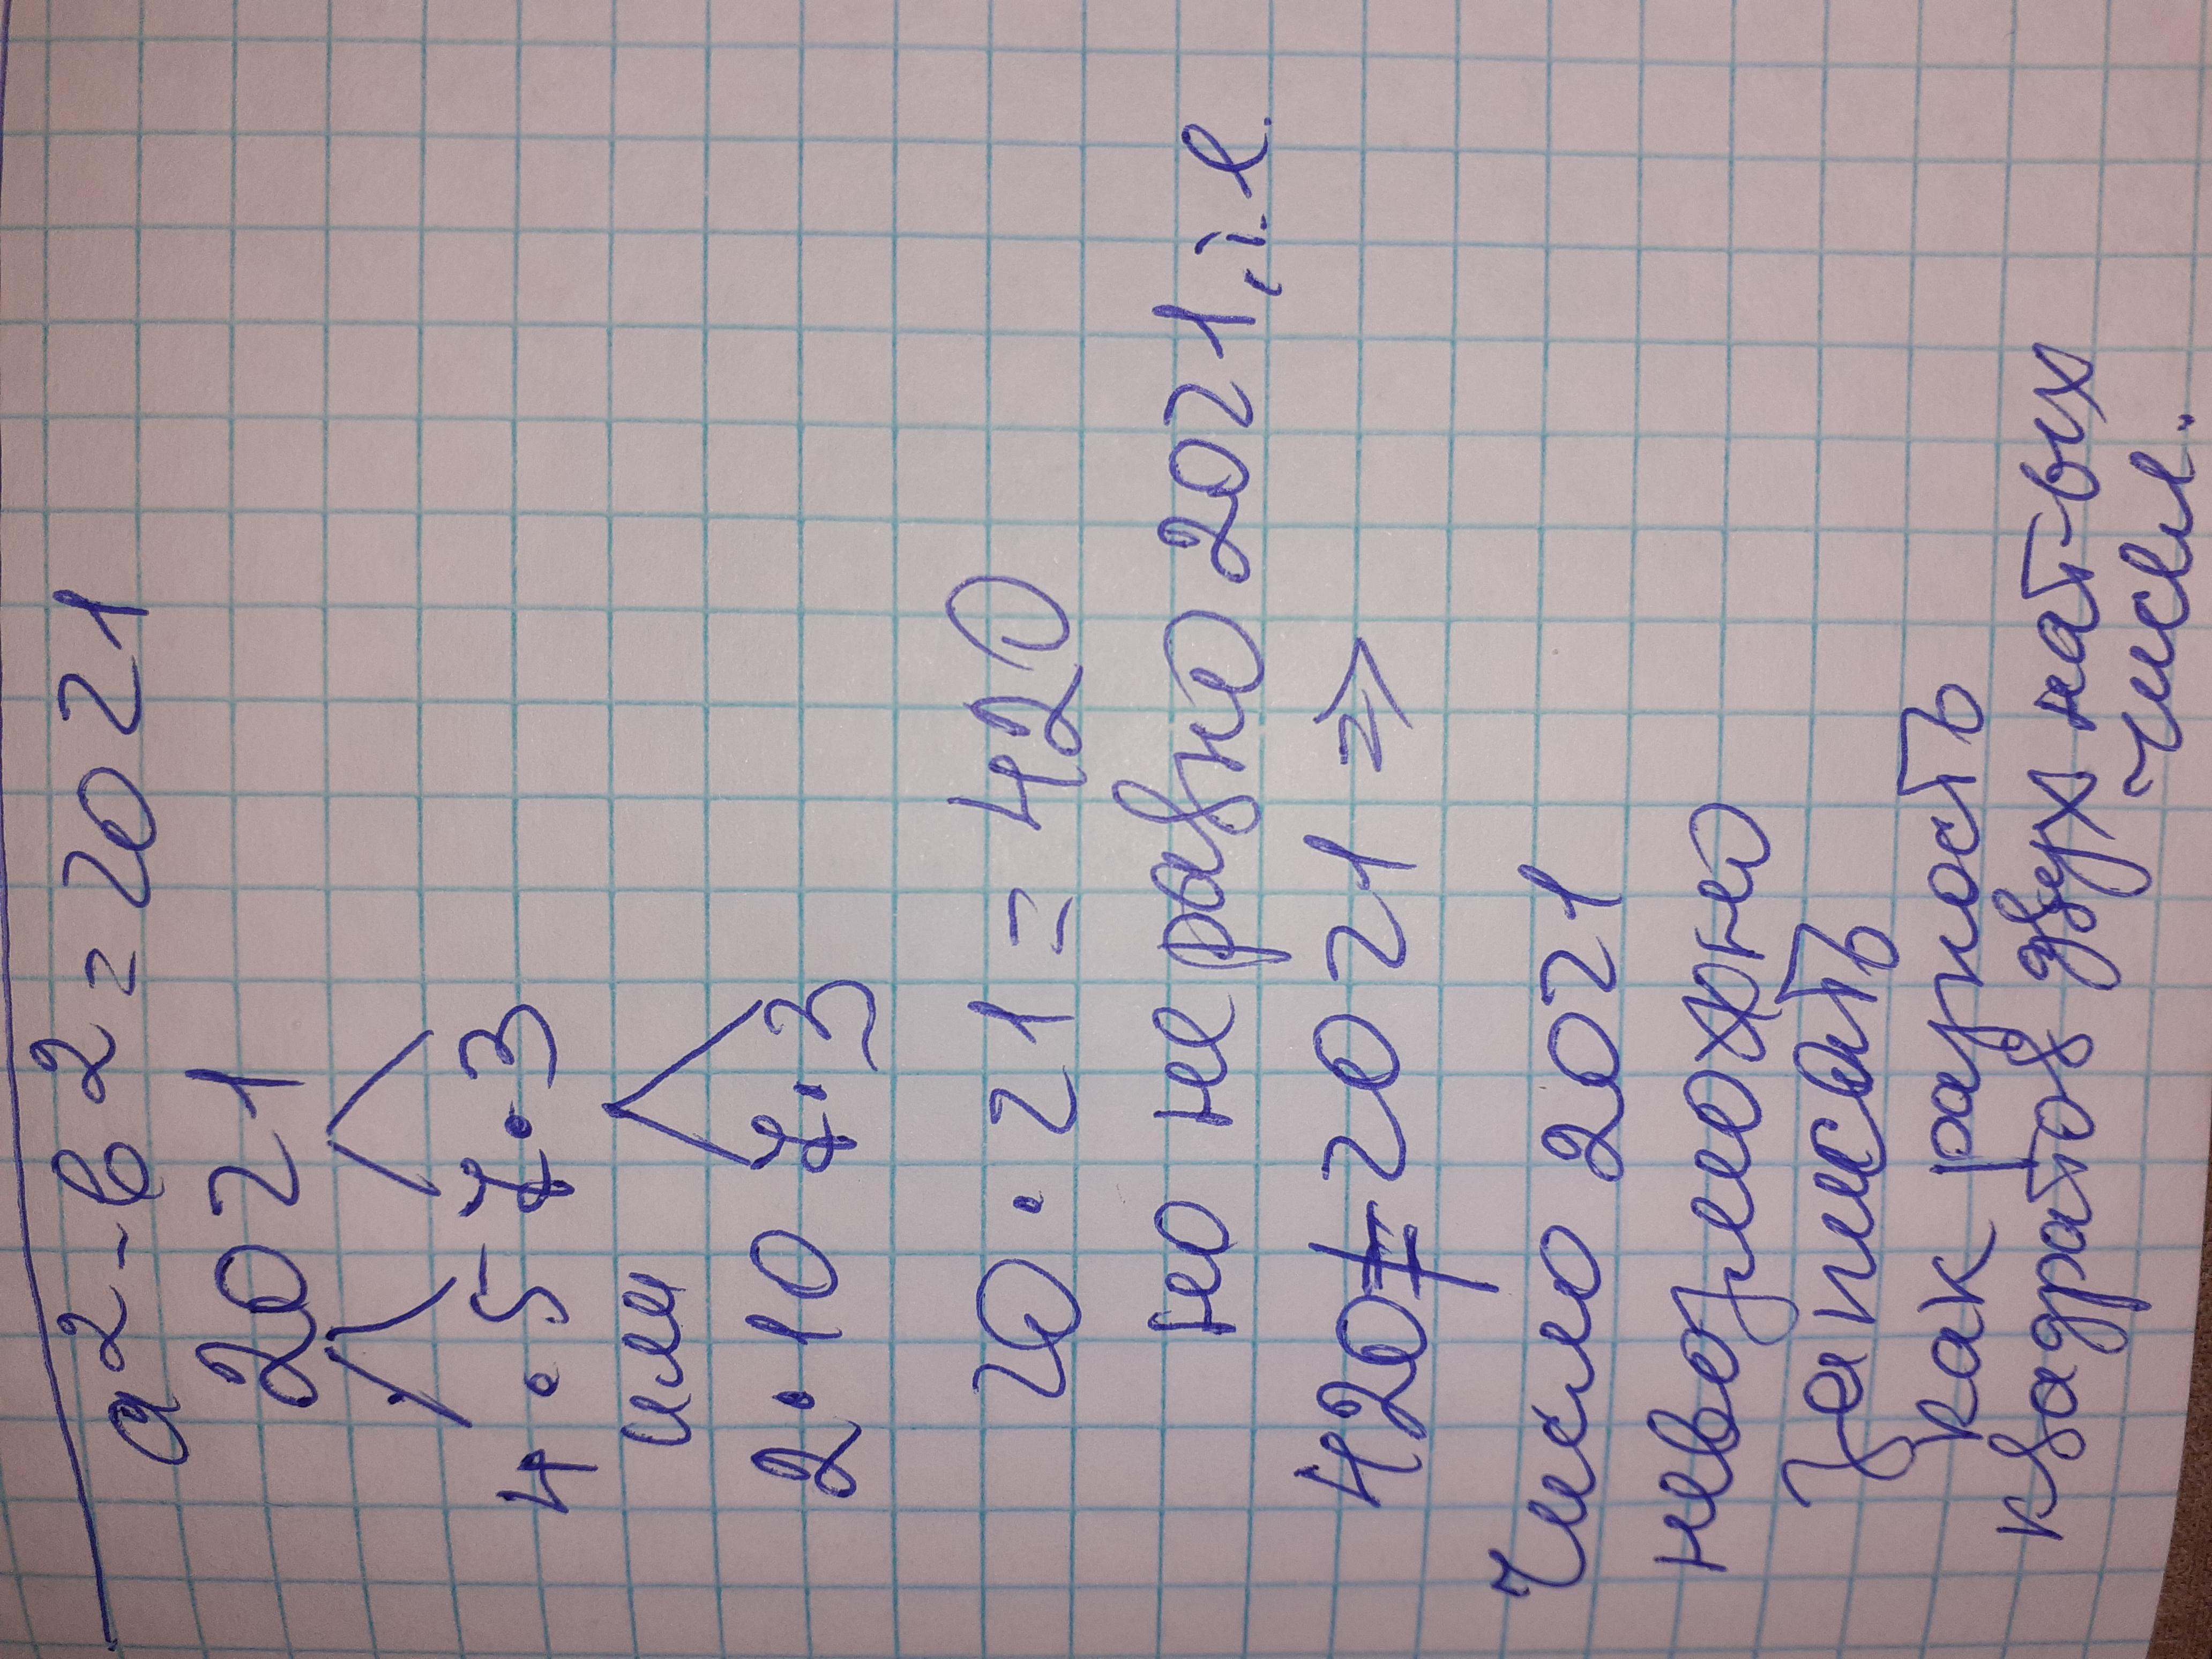 a2-в2=2021
2021
4·5 7·3
или
2·10 7·3
20·21=420
но не равно 2021, т.е.
420≠2021 =>
число 2021
невозможно
записать
как разность
квадратов двух нат-ых
чисел.